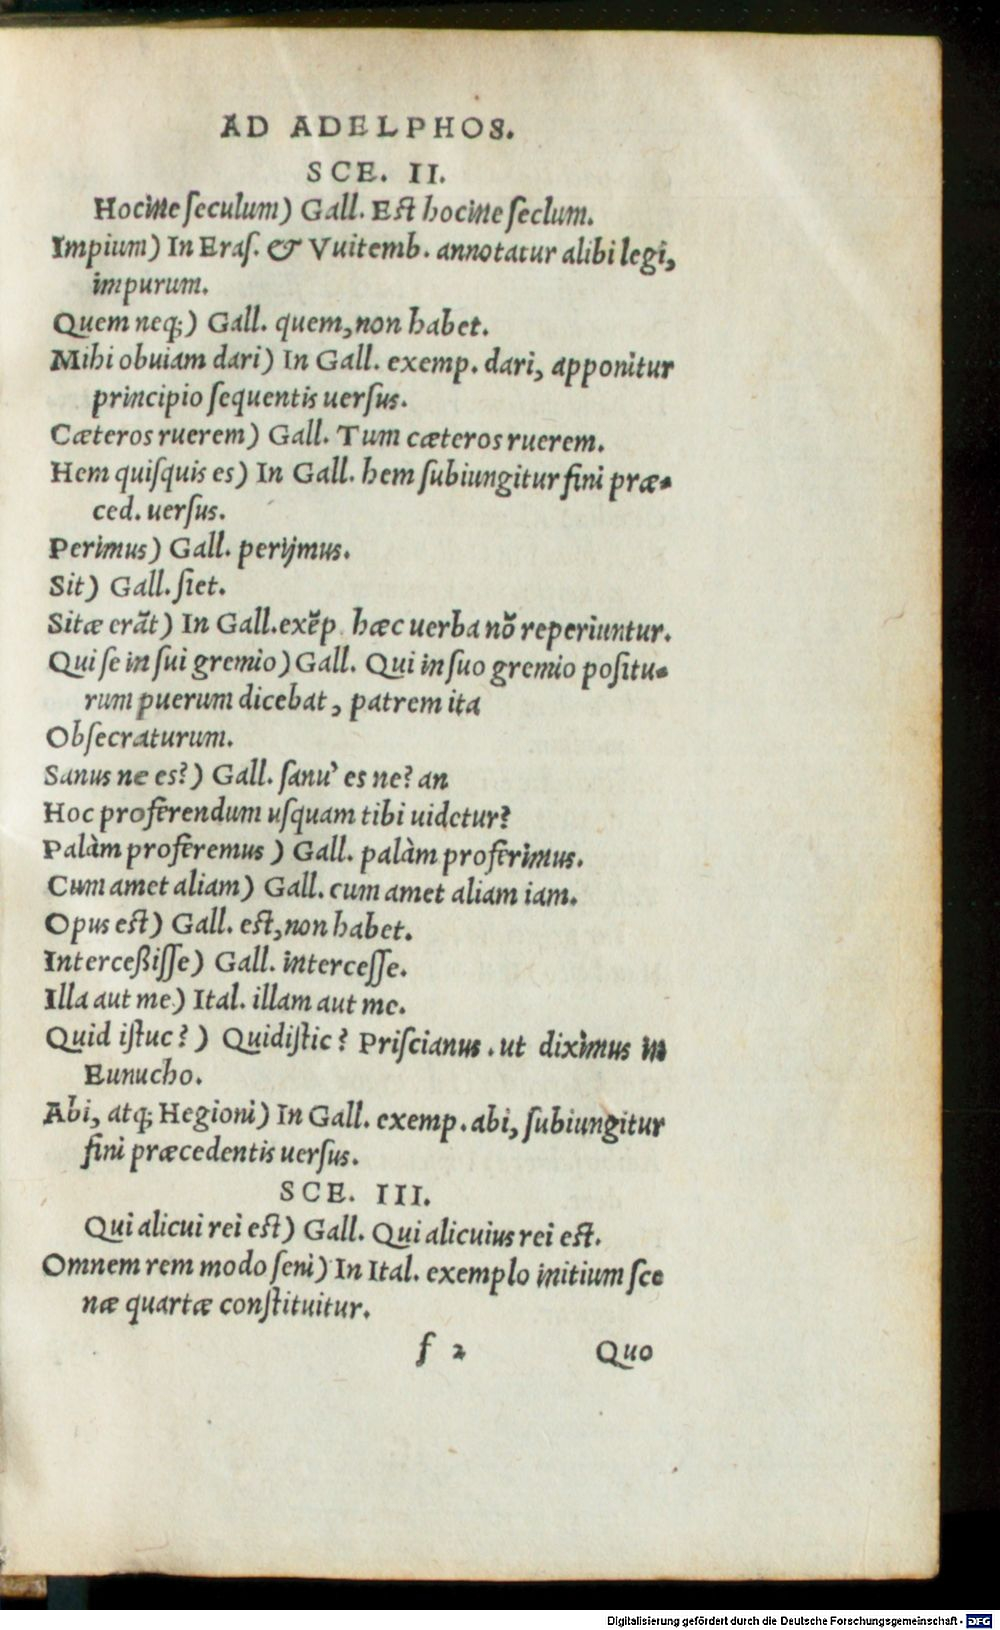 AD ADELPHOS.
SCE. II.
Hocine ſeculum) Gall. Eſt hocine ſeclum.
Impium) In Eraſ. & Vuitemb. annotatur alibi legi,
impurum.
Quem neq;) Gall. quem, non habet.
Mihi obuiam dari) In Gall. exemp. dari, apponitur
principio ſequentis uerſus.
Cæteros ruerem) Gall. Tum cæteros ruerem.
Hem quiſquis es) In Gall. hem ſubiungitur fini præ-
ced. uerſus.
Perimus) Gall. perijmus.
Sit) Gall. ſiet.
Sitæ erāt) In Gall. exēp. hæc uerba nō reperiuntur.
Qui ſe in ſui gremio) Gall. Qui in ſuo gremio poſitu-
rum puerum dicebat, patrem ita
Obſecraturum.
Sanus ne es?) Gall. ſanu' es ne? an
Hoc proferendum uſquam tibi uidetur?
Palàm proferemus) Gall. palàm proferimus.
Cum amet aliam) Gall. cum amet aliam iam.
Opus eſt) Gall. eſt, non habet.
Interceßiſſe) Gall. interceſſe.
Illa aut me) Ital. illam aut me.
Quid iſtuc?) Quid iſtic? Priſcianus. ut diximus in
Eunucho.
Abi, atq; Hegioni) In Gall. exemp. abi, ſubiungitur
fini præcedentis uerſus.
SCE. III.
Qui alicui rei eſt) Gall. Qui alicuius rei eſt.
Omnem rem modo ſeni) In Ital. exemplo initium ſce
næ quartæ conſtituitur.
f 2 Quo
Digitalisierung gefördert durch die Deutsche Forschungsgemeinschaft - DFG